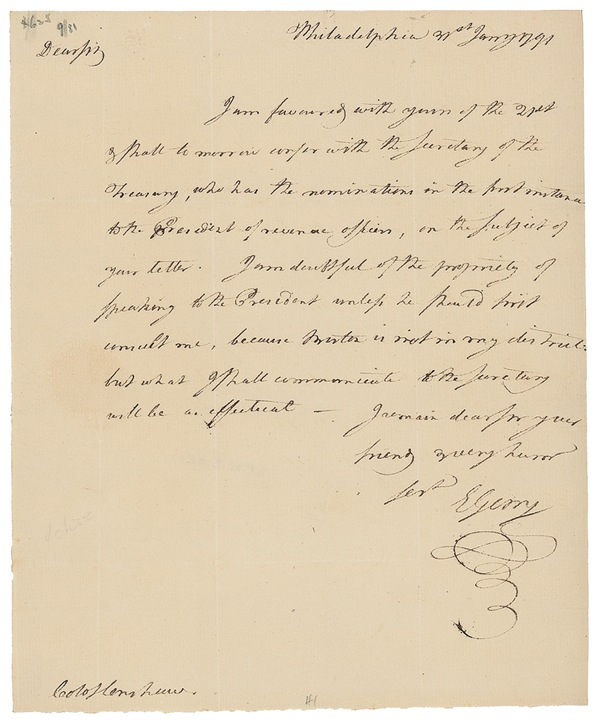 $625 9/81
Philadelphia 31st Jany 1791
Dear sir
I am favoured with yours of the 21st
& shall to morrow confer with the Secretary of the
Treasury, who has the nominations in the first instance
to the President of revenue officers, on the subject of
your letter. I am doubtful of the propriety of
speaking to the President unless he should first
consult me, because Boston is not in my district.
but what I shall communicate to the Secretary
will be as effectual — I remain dear sir your
friend & very hum
Sert E Gerry
Colo Henshaw.